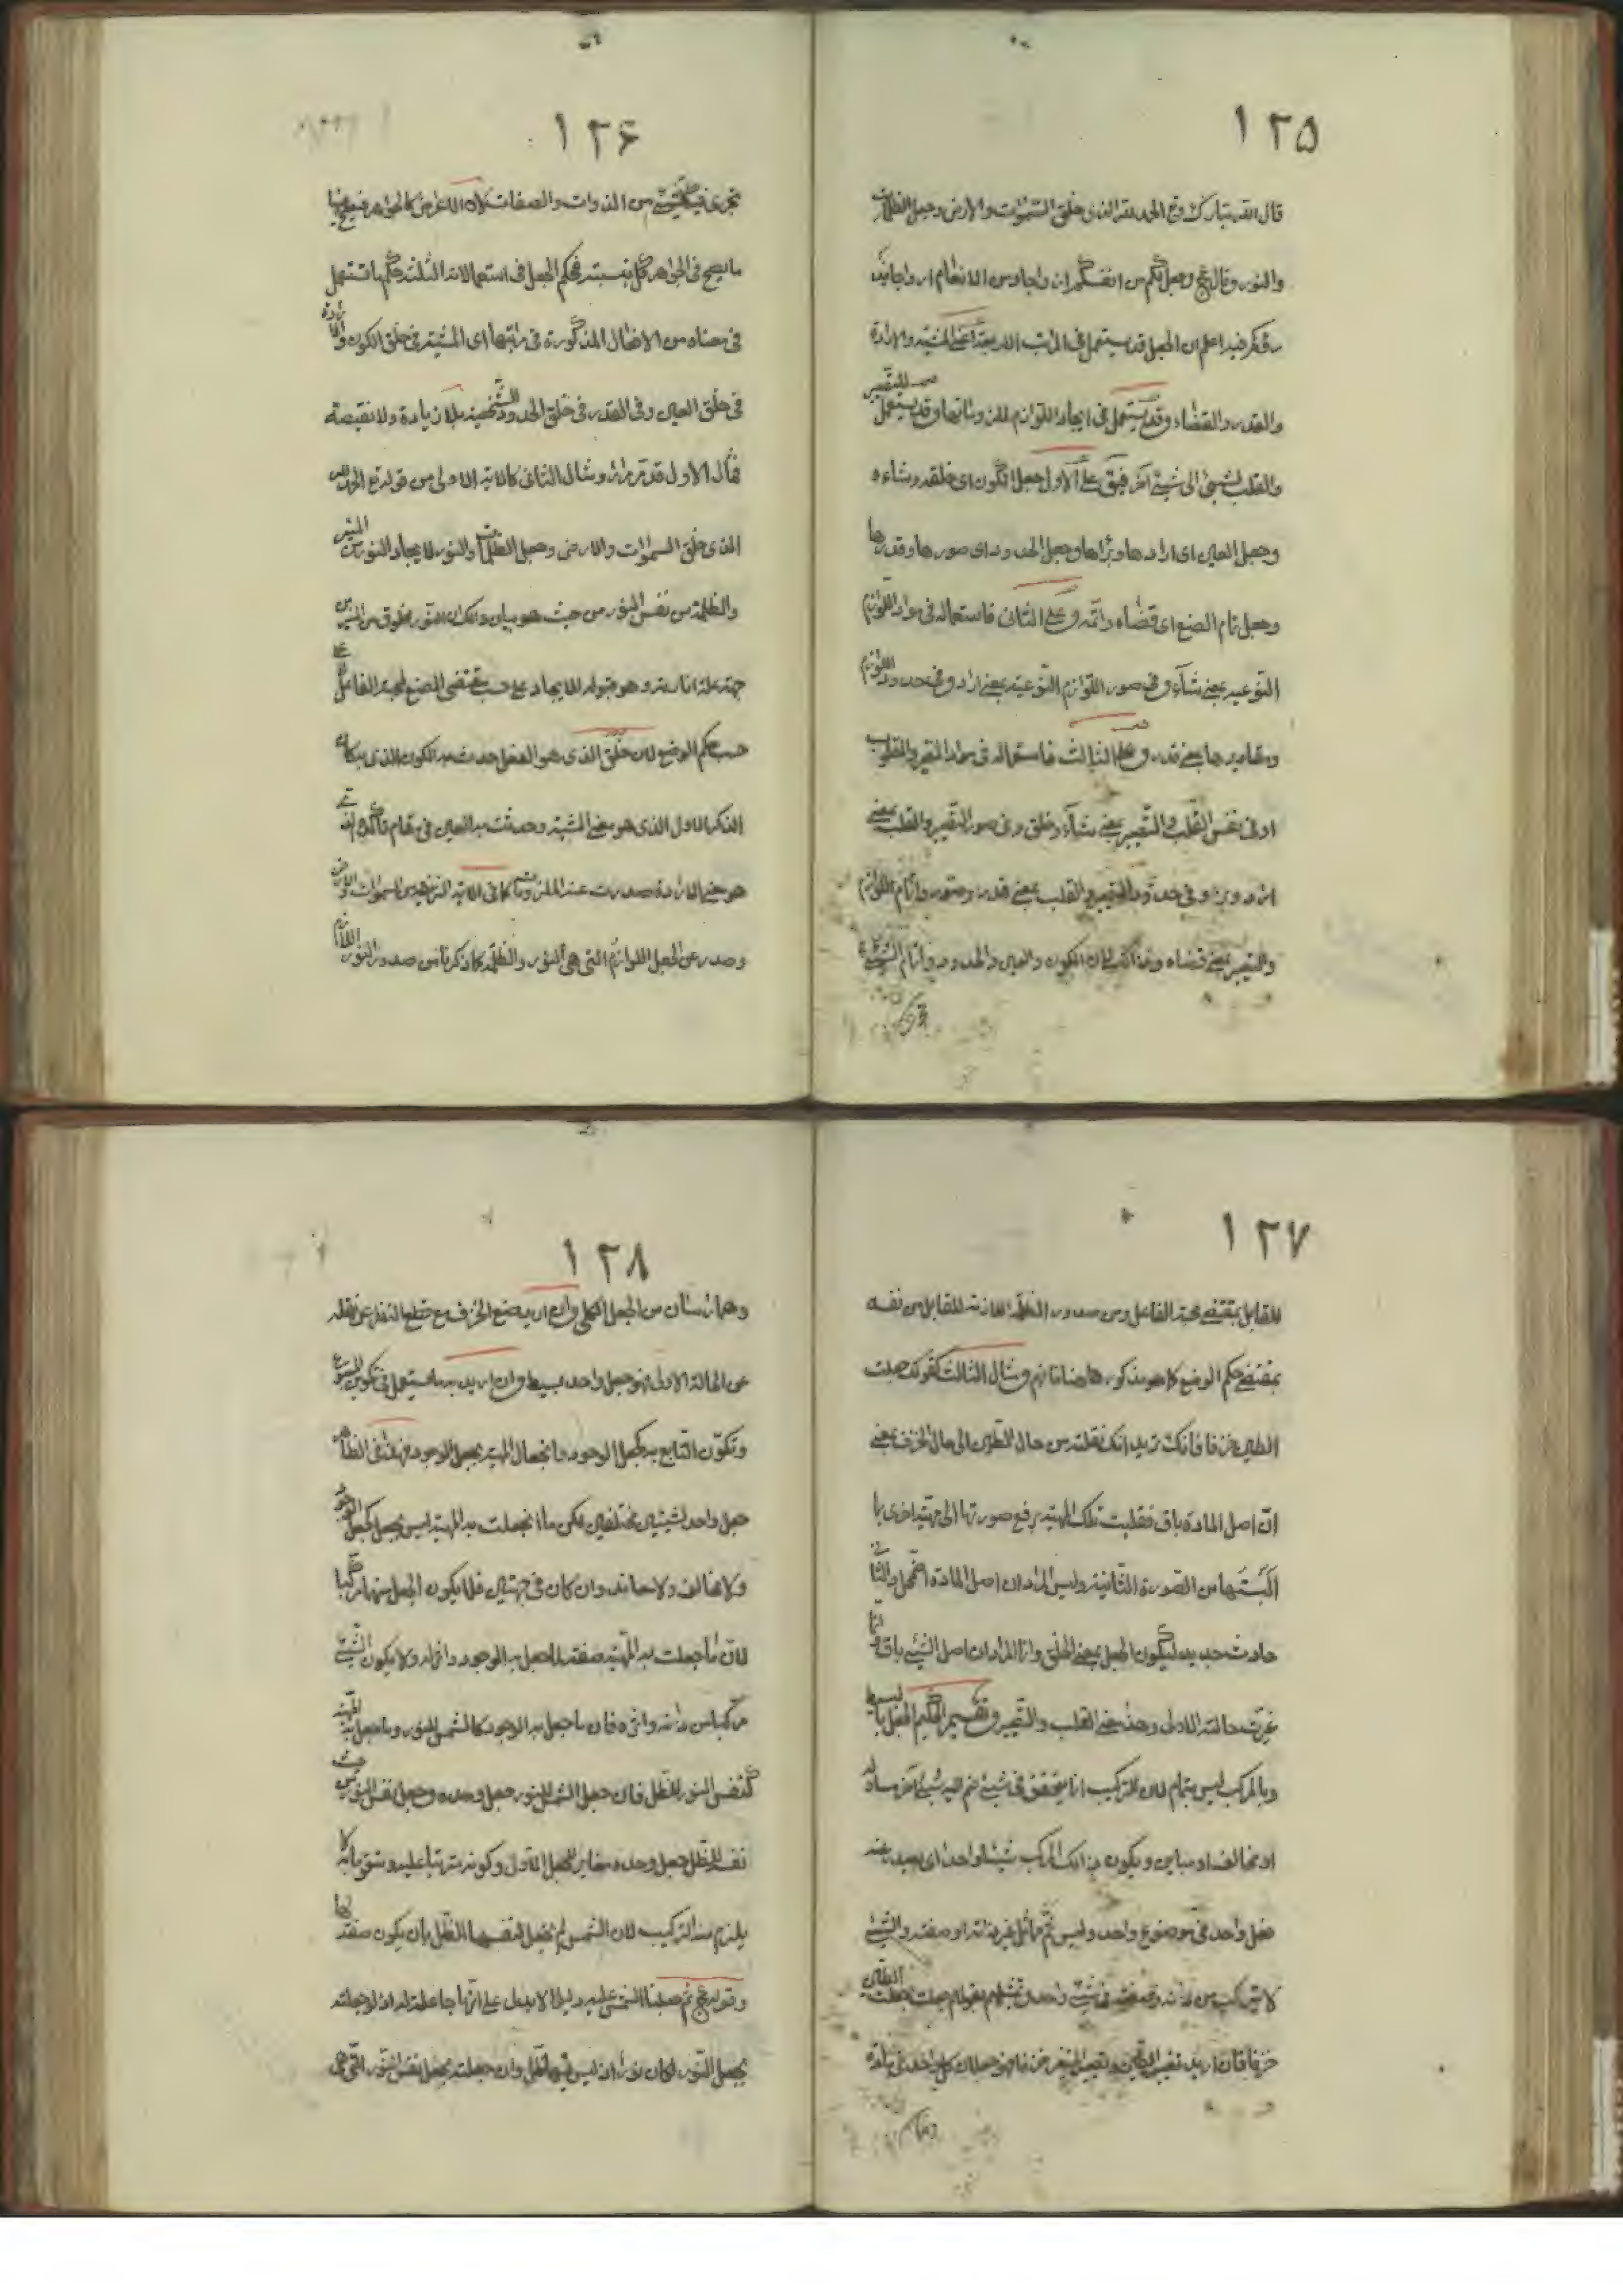 ١٢٥
قال الله تبارك وتع الحمد لله الذى خلق السموات والارض وجعل الظلمات
والنور وقال تع وجعل لكم من انفسكم ازواجا ومن الانعام ازواجا
يذرؤكم فيه اعلم ان الجعل قد يستعمل فى المراتب الاربعة اعنى المشية والارادة
والقدر والقضاء وقد يستعمل فى ايجاد اللوازم لملزوماتها وقد يستعمل للتغيير
والقلب لشيئ الى شيئ آخر فيق على الاول جعل الكون اى خلقه وشاءه
وجعل العين اى ارادها وبرأها وجعل الحدود اى صورها وقدرها
وجعل تمام الصنع اى قضاه واتمه وعلى الثانى فاستعماله فى مواد اللوازم
النوعيه بمعنى شآء وفى صور اللوازم النوعية بمعنى اراد وفى حدود اللوازم
ومقاديرها بمعنى قدر وعلى الثالث فاستعماله فى مواد التغيير والقلب
او فى نفس القلب والتغيير بمعنى شآء وخلق وفى صور التغيير والقلب بمعنى
اراد وبرء وفى حدود التغيير والقلب بمعنى قدر وصور واتمام اللوازم
والتغيير بمعنى قضاه وذلك لان الكون والعين والحدود واتمام الشيئ
١٢٦
تجرى فى كل شيئ من الذوات والصفات لان الاعراض كالجواهر فيصح فيها
ما يصح فى الجواهر كل بنسبته فحكم الجعل فى استعمالاته الثلثة حكم ما تستعمل
فى معناه من الافعال المذكورة فى مراتبها اى المشية فى خلق الكون والارادة
فى خلق العين وفى القدر فى خلق الحدود الشخصية بلا زيادة ولا نقيصة
فمثال الاول قد تر مرارا ومثال الثانى كالاية الاولى من قوله تع الحمد لله
الذى خلق السموات والارض وجعل الظلمات والنور لايجاد النور من المنير
والظلمة من نفس النور من حيث هو بيان ذلك ان النور مخلوق من المنير من
جهة علة انارته وهو قبوله للايجاد على حسب مقتضى الصنع لمحبة الفاعل على
حسب حكم الوضع لان خلق الذى هو الفعل حدث به الكون الذى مكانه
الذكر الاول الذى هو معنى المشية وحدثت به العين فى مقام تأكده الذى
هو معنى الارادة صدرت عنه الملزومات كما فى الاية الشريفة من السموات والارض
وصدر عن الجعل اللوازم التى هى النور والظلمة كما ذكرنا من صدور النور اللازم
١٢٧
للقابل بمقتضى محبة الفاعل ومن صدور الظلمة اللازمة للقابل من نفسه
بمقتضى حكم الوضع كما هو مذكور هاهنا فافهم ومثال الثالث كقولك جعلت
الطين خزفا فانك تريد انك نقلته من حال الطين الى حال الخزف بمعنى
ان اصل المادة باق فقلبت تلك المهية برفع صورتها الى مهية اخرى بما
البستها من الصورة الثانية وليس المراد ان اصل المادة اضمحل والثانى
حادث جديد ليكون الجعل بمعنى الخلق وانما المراد ان اصل الشيئ باق وانما
غيرت حالته الاولى وهذا معنى القلب والتغيير وتقسيم الحكيم الجعل بالبسيط
وبالمركب ليس بتمام لان التركيب انما يتحقق فى شيئ ضم اليه شيئ آخر مساو له
او مخالف او مباين ويكون ذلك المركب شيئا واحدا اى يصدر بعنه
فعل واحد فى موضوع واحد وليس ثم ماثل بغير ذاته او صفته والشيئ
لا يتركب من ذاته وصفته فى شيئ واحد وتمثيلهم بقولهم جعلت الطين
خزفا فان اريد تغيير الطين وتصيير المتغير خزفا فهو جعلان كل واحد فى مادة
١٢٨
وهما اثنان من الجعل الكلى وان اريد صنع الخزف مع قطع النظر عن نقله
عن الحالة الاولى فهو جعل واحد بسيط وان اريد به ما يستعمل فى تكوين المتبوع
وتكون التابع به كجعل الوجود وانجعال المهية بجعل الوجود فهذا فى الظاهر
جعل واحد لشيئين مختلفين لكن ما انجعلت به المهية ليس بجعل كجعل الوجود
ولا مخالف ولا معاند وان كان فى جهتين فلا يكون الجعل منهما مركبا
لان ما جعلت به المهية صفة لما جعل به الوجود واثر له ولا يكون الشيئ
مركبا من ذاته واثره فان ما جعل به الوجود كالشمس للنور وما جعل به المهية
كنفس النور للظل فان جعل الشمس للنور جعل وحده وجعل نفس النور من حيث
نفسه للظل جعل وحده مغاير للجعل الاول وكونه مترتبا عليه ومتقوما به لا
يلزم منه التركيب لان الشمس لم تجعل لنفسها الظل بان يكون صفة لها
وقوله تع ثم جعلنا الشمس عليه دليلا لا يدل على انها جاعلة له اذ لو جعلته
بجعل النور لكان نورا اذ ليس فيها ظل وان جعلته بجعل نفس النور التى هى